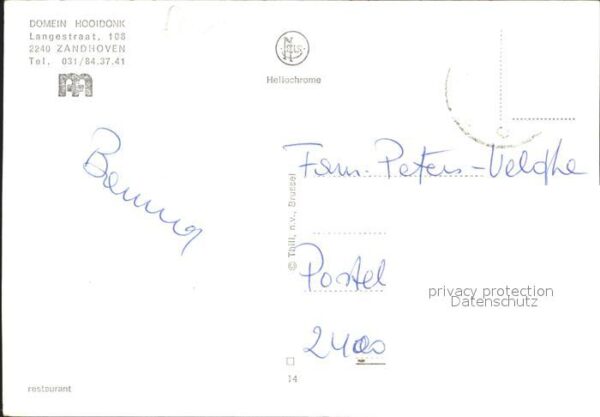 DOMEIN HOOIDONK
Langestraat, 108
2240 ZANDHOVEN
Tel. 031/84.37.41
Heliochrome
Fam. Peters-Velghe
© Thill, n.v., Brussel
Postel
2400
privacy protection
Datenschutz
restaurant
14